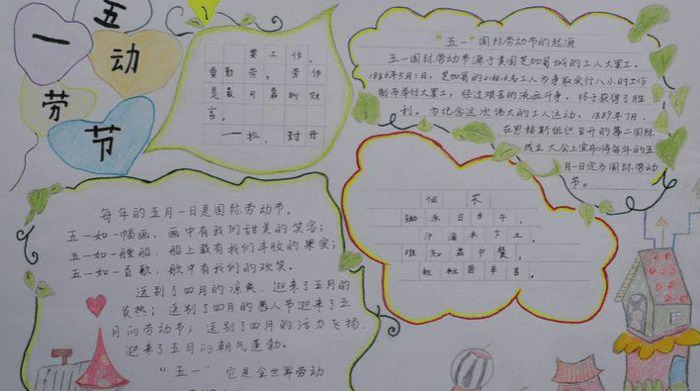 一
动
劳
节
要工作,
要勤劳,劳作
是最可靠的财
富。
“五一”国际劳动节的起源
五一国际劳动节源于美国芝加哥城的工人大罢工。
1886年5月1日,芝加哥的216000名工人为争取实行八小时工作
制而举行大罢工,经过艰苦的流血斗争,终于获得了胜
利。为纪念这次伟大的工人运动,1889年7月,
在恩格斯组织召开的第二国际
成立大会上宣布将每年的五
月一日定为国际劳动
节。
每年的五月一日是国际劳动节。
五一如一幅画,画中有我们甜美的笑容;
五一如一艘船,船上载有我们丰收的果实;
五一如一首歌,歌中有我们的欢笑。
送别了四月的凉爽,迎来了五月的
炎热;送别了四月的愚人节迎来了五
月的劳动节;送别了四月的活力飞扬,
迎来了五月的朝气蓬勃。
“五一”它是全世界劳动
锄禾日当午,
汗滴禾下土。
谁知盘中餐,
粒粒皆辛苦。